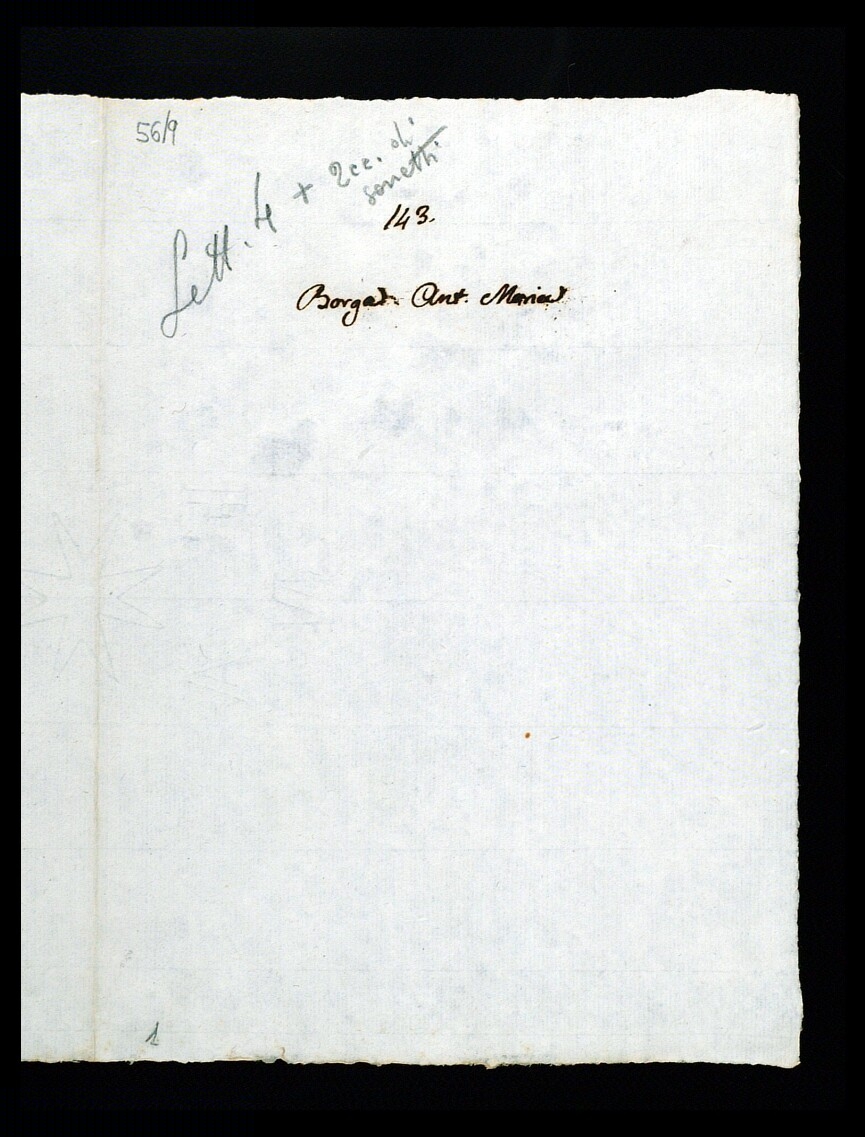 56/9
Lett. 4 + 2 cc. di
sonetti
143.
Borga Ant. Maria
1